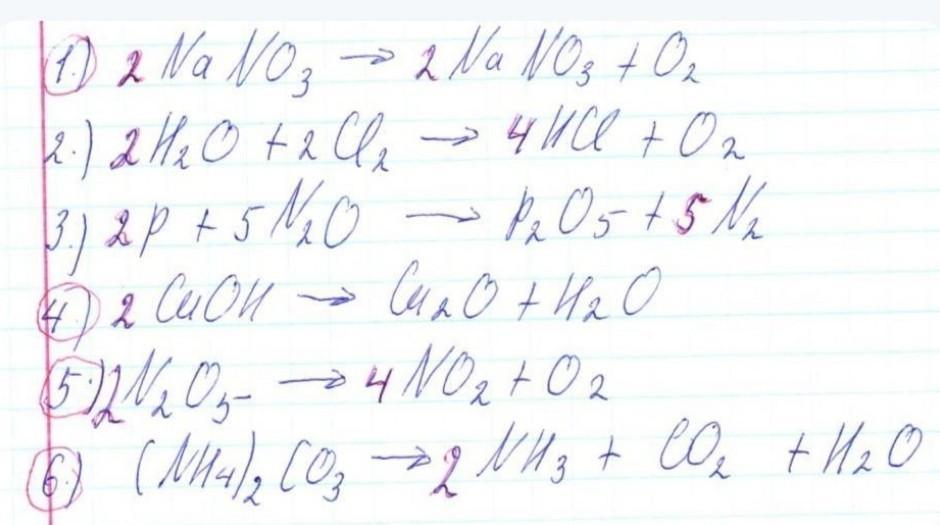 1.) 2 NaNO₃ → 2 NaNO₃ + O₂
2.) 2H₂O + 2Cl₂ → 4HCl + O₂
3.) 2P + 5N₂O → P₂O₅ + 5N₂
4.) 2 CuOH → Cu₂O + H₂O
5.) 2N₂O₅ → 4NO₂ + O₂
6.) (NH₄)₂CO₃ → 2 NH₃ + CO₂ + H₂O